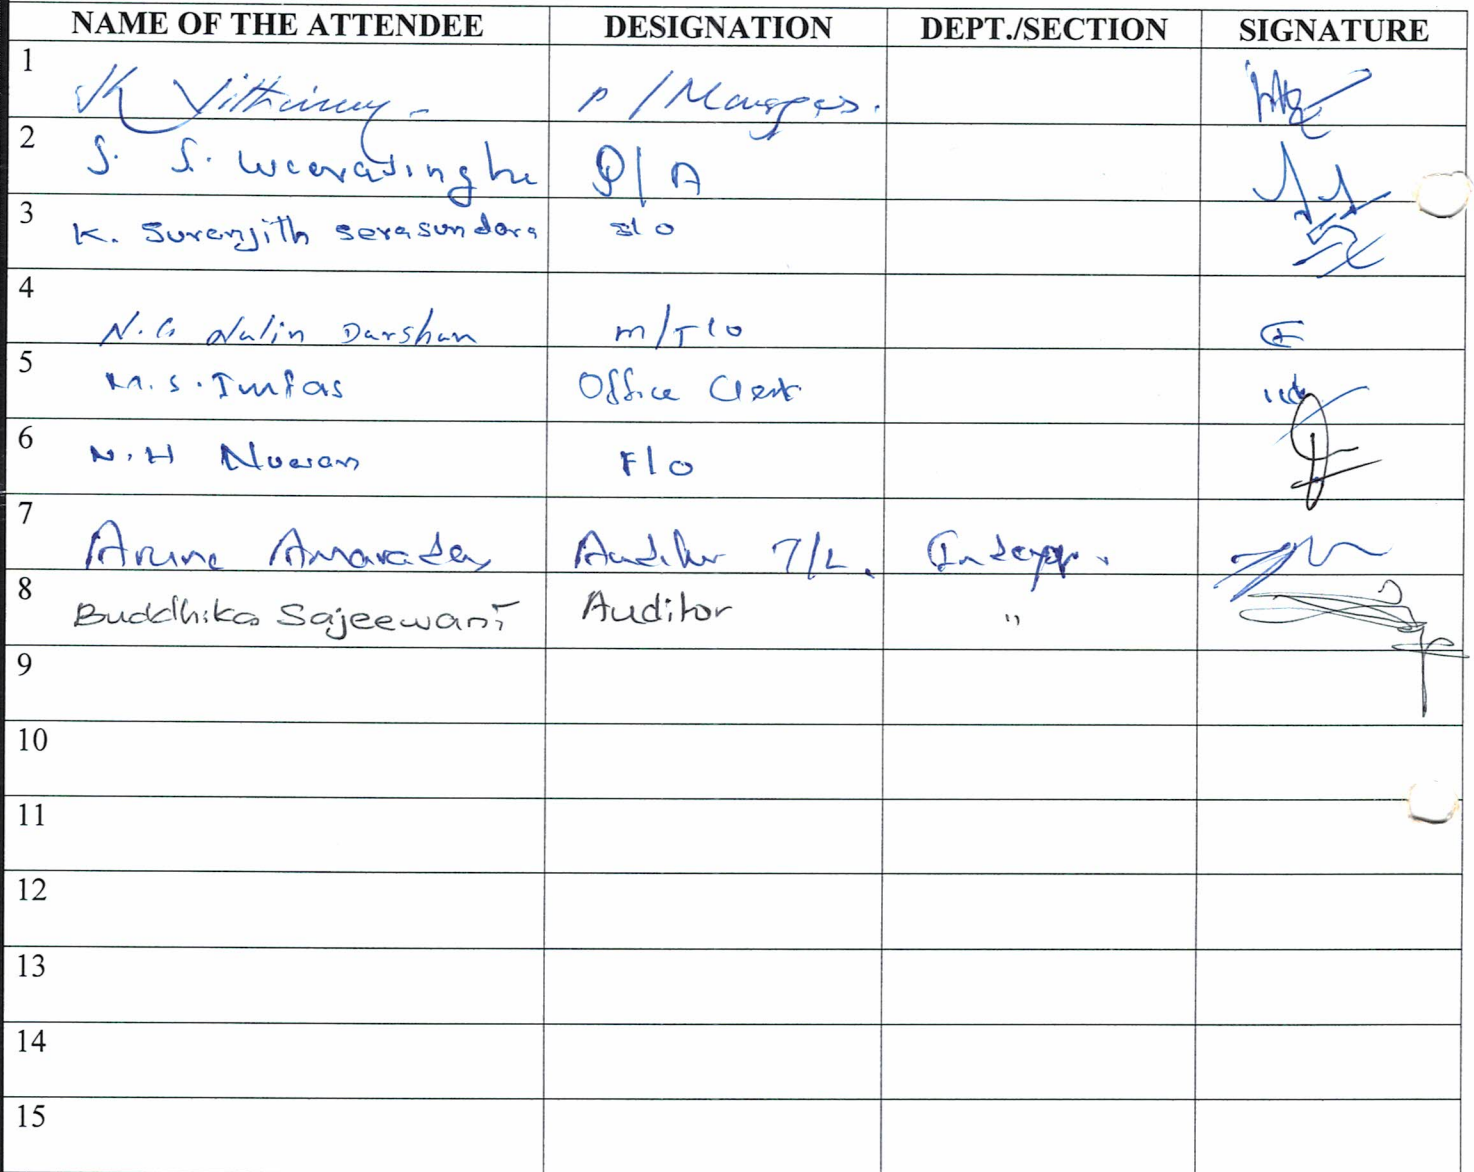 NAME OF THE ATTENDEE DESIGNATION DEPT./SECTION SIGNATURE
1 K P / Manager.
2 S. S. Weerasinghe P/A
3 K. Suranjith Serasundara S/O
4 N.G. Nalin Darshan M/F/O
5 M.S. Imfas Office Clerk
6 N.H Nuwan F/O
7 Aruna Amaradey Auditor T/L.
8 Buddhika Sajeewani Auditor "
9
10
11
12
13
14
15